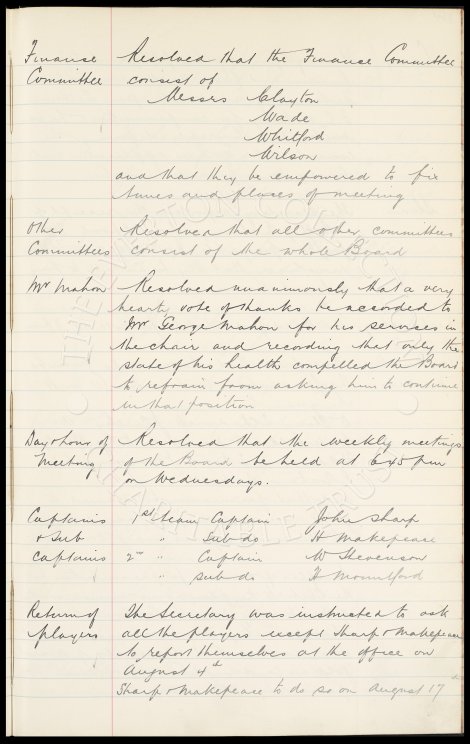 Finance Resolved that the Finance Committee
Committee consist of
Messrs Clayton
Wade
Whitford
Wilson
and that they be empowered to fix
times and places of meeting
Other Resolved that all other committees
Committees consist of the whole Board
Mr Mahon Resolved unanimously that a very
hearty vote of thanks be accorded to
Mr George Mahon for his services in
the chair and recording that only the
state of his health compelled the Board
to refrain from asking him to continue
in that position
Day & hour of Resolved that the weekly meetings
Meeting of the Board be held at 6.45 pm
on Wednesdays.
Captains 1st team Captain John Sharp
& Sub " Sub do H Makepeace
Captains 2nd " Captain W Stevenson
" Sub do F Mountford
Return of The Secretary was instructed to ask
players all the players except Sharp & Makepeace
to report themselves at the office on
August 4th
Sharp & Makepeace to do so on August 17th
THE EVERTON COLLECTION
CHARITABLE TRUST